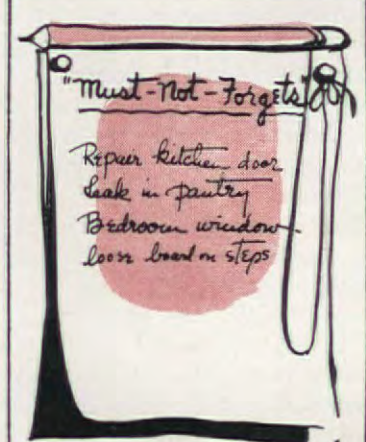 "Must-Not-Forgets"
Repair kitchen door
Leak in pantry
Bedroom window
loose board on steps